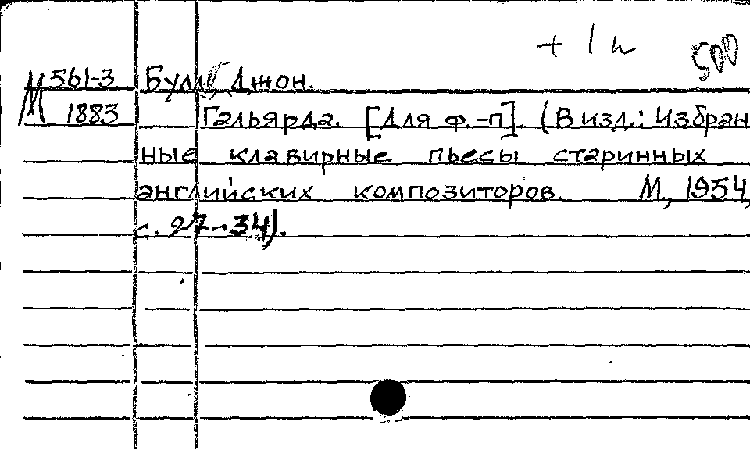 + 1 н 500
М 561-3 Булл Джон.
1883 Гальярда. [Для ф.-п]. (В изд.: Избран
ные клавирные пьесы старинных
английских композиторов. М., 1954,
с. 27-34).